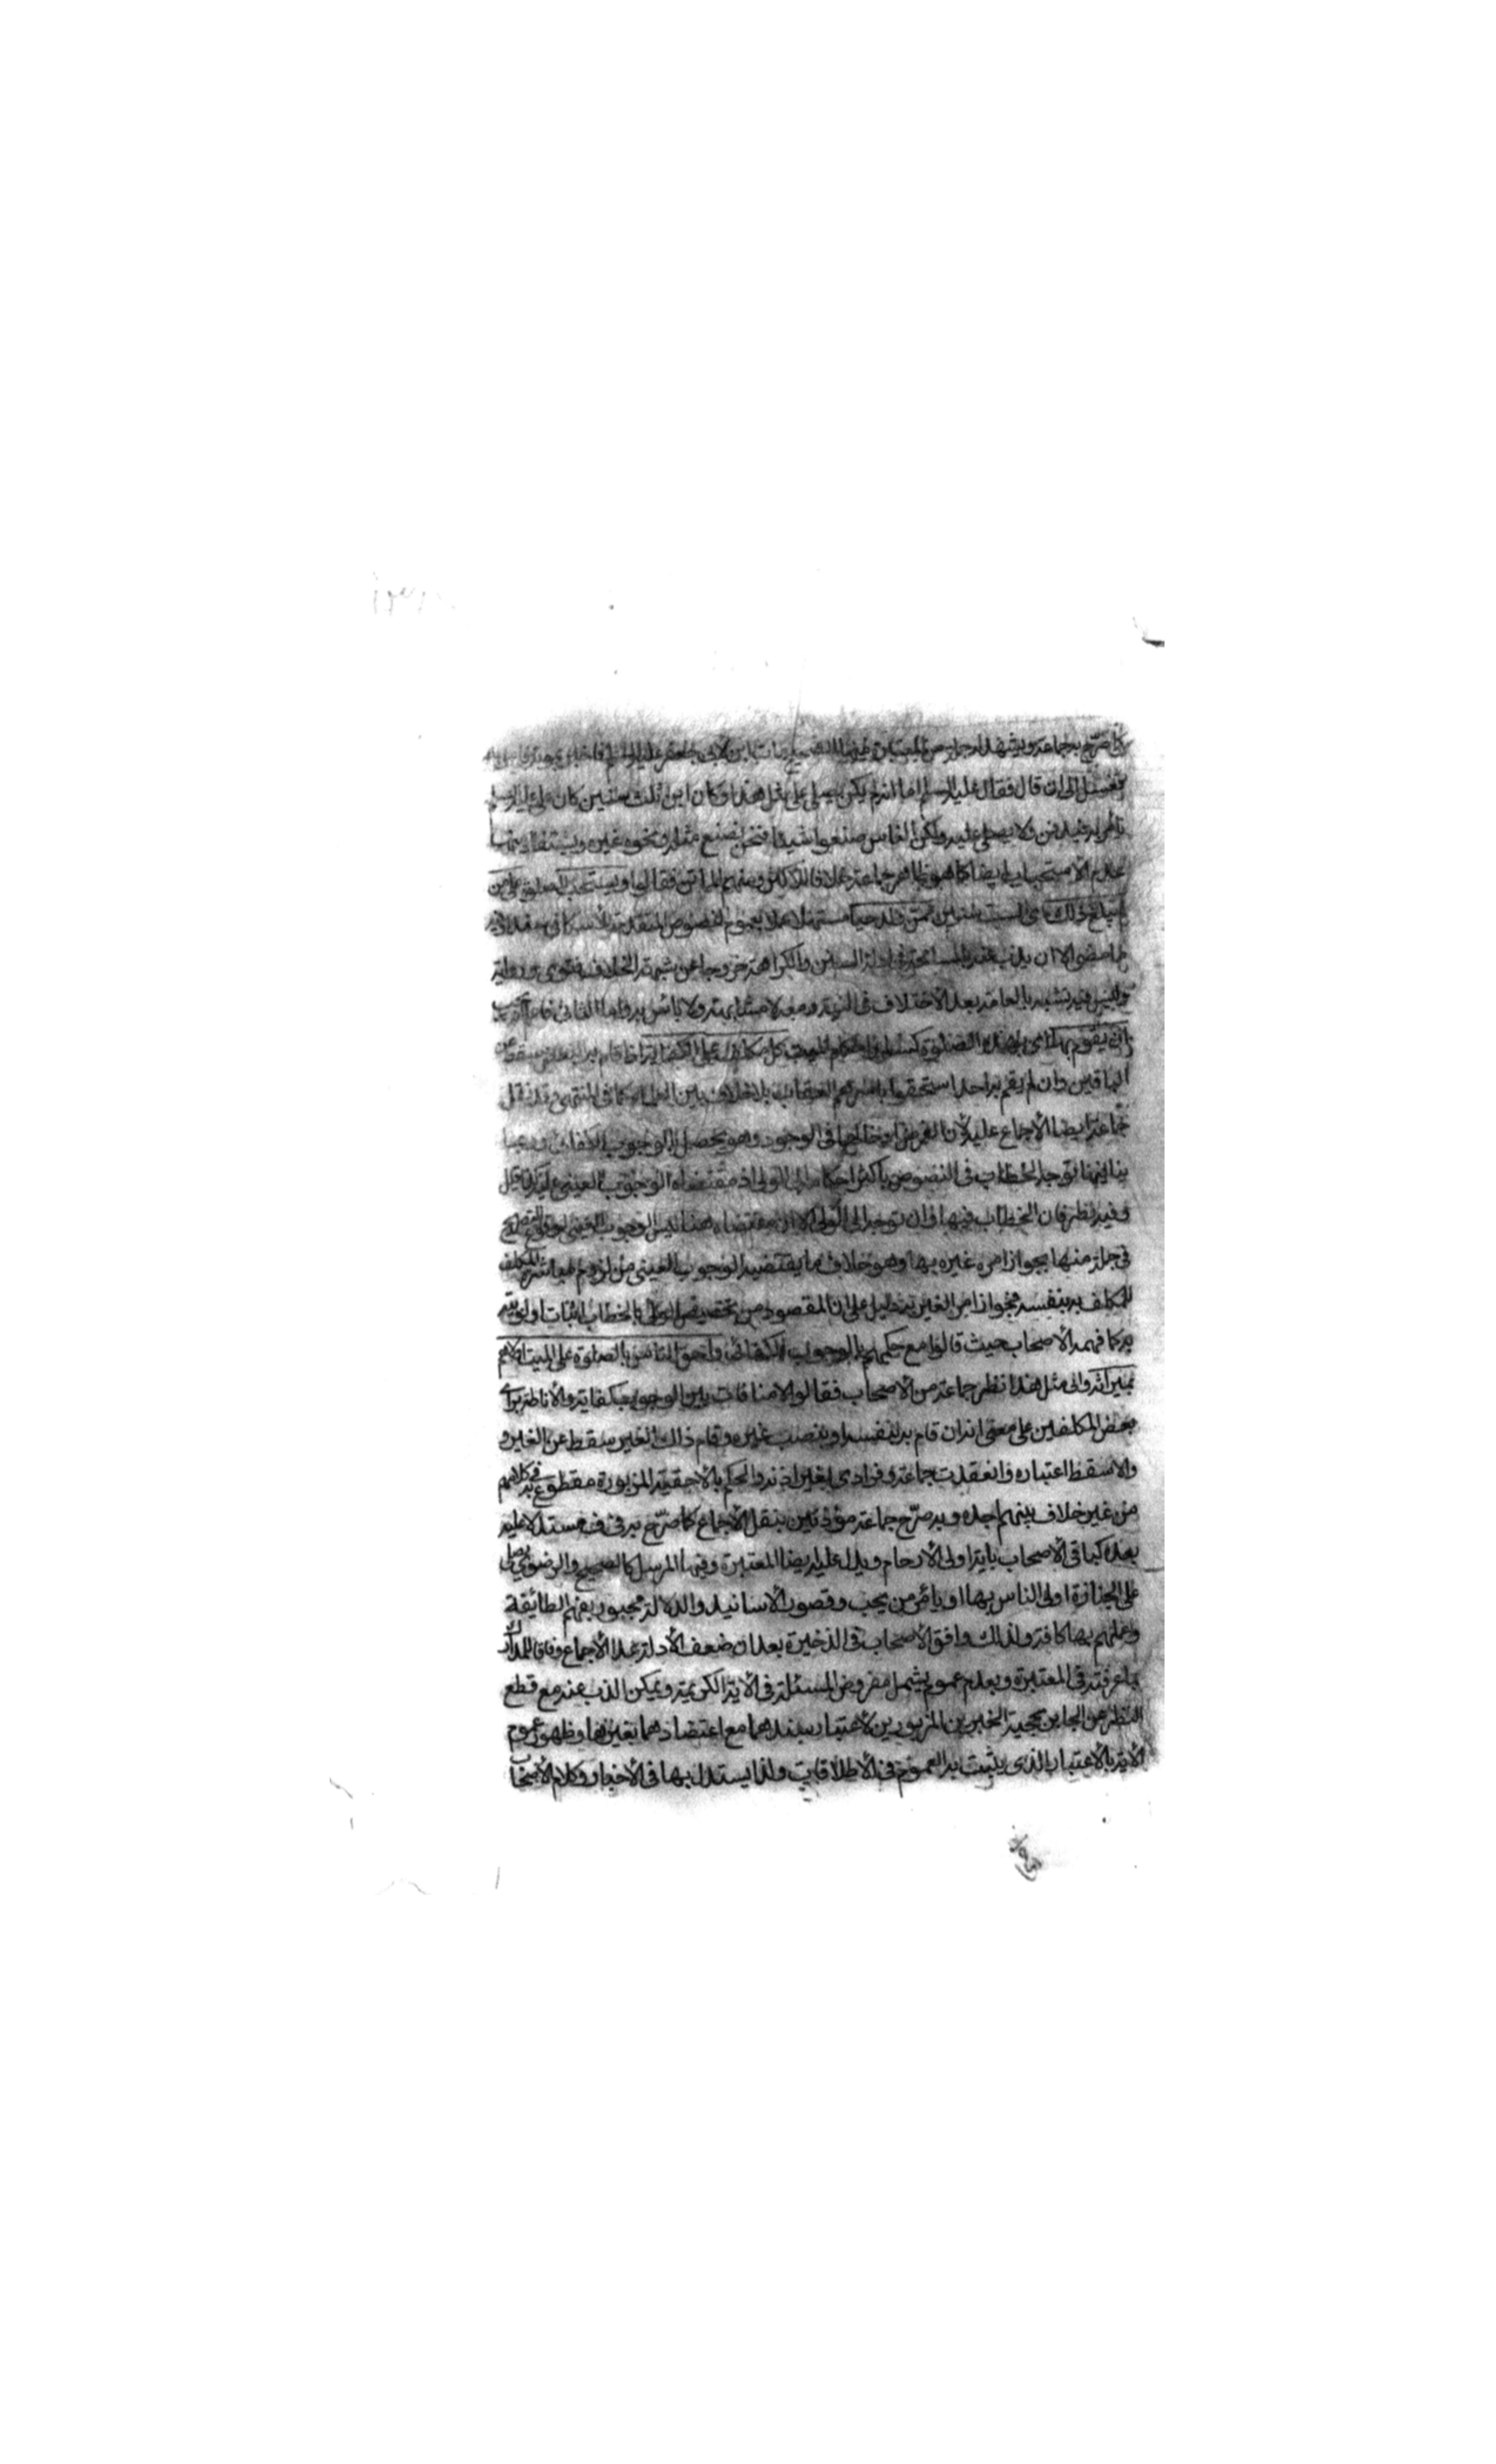 كما صرّح به جماعة ويشهد له جملة من المعتبرة
فغسّل الى ان قال فقال عليه السلم اما انه لم يكن يصلى على مثل هذا وكان ابن ثلث سنين كان على عليه السلم
يأمر به فيدفن ولا يصلى عليه ولكن الناس صنعوا شيئا فنحن نصنع مثله ونحوه غيره ويستفاد منها
عدم الاستحباب ايضا كما هو ظاهر جماعة خلافا للاكثر ومنهم الماتن فقالوا ويستحب الصلوة على من
لم يبلغ ذلك اى الست سنين ممن ولد حيا مستهلا عملا بعموم النصوص المتقدمة
لما مضى الا ان يذب عنه بالمسامحة في ادلة السنن والكراهة خروجا عن شبهة الخلاف فتوى ورواية
وليس فيه تشبه بالعامة بعد الاختلاف في النية ومعه لا مشابهة ولا باس به واما الثانى فاعلم انه يجب
ان يقوم بها اى بهذه الصلوة كسائر احكام الميت كل مكلف على الكفاية اذا قام به البعض سقط عن
الباقين وان لم يقم به احد استحقوا باسرهم العقاب بلا خلاف بين العلماء كما في المنتهى وقد نقل
جماعة ايضا الاجماع عليه لان الغرض ادخالها في الوجود وهو يحصل بالوجوب الكفائى وربما
ينافيهما توجه الخطاب في النصوص باكثر احكامه الى الولى اذ مقتضاه الوجوب العينى عليه كذا قيل
وفيه نظر فان الخطاب فيها وان توجه الى الولى الا ان مقتضاه هنا ليس الوجوب العينى لوقوع التصريح
في جملة منها بجواز امره غيره بها وهو خلاف ما يقتضيه الوجوب العينى من لزوم مباشرة المكلف
للمكلف به بنفسه فجواز امر الغير به دليل على ان المقصود من تخصيص الولى بالخطاب اثبات اولويته
به كما فهمه الاصحاب حيث قالوا مع حكمهم بالوجوب الكفائى واحق الناس بالصلوة على الميت اولاهم
بميراثه والى مثل هذا نظر جماعة من الاصحاب فقالوا لا منافات بين الوجوب كفاية والاناطة براى
بعض المكلفين على معنى انه ان قام به بنفسه او بنصب غيره وقام ذلك الغير سقط عن الغير و
والا سقط اعتباره وانعقدت جماعة وفرادى بغير اذنه والحكم بالاحقية المزبورة مقطوع به في كلامهم
من غير خلاف بينهم اجده وبه صرّح جماعة مؤذنين بنقل الاجماع كما صرّح به في ف مستدلا عليه
بعده كباقى الاصحاب باية اولى الارحام ويدل عليه ايضا المعتبرة وفيها المرسل كالصحيح والرضوى يصلى
على الجنازة اولى الناس بها او يامر من يحب وقصور الاسانيد والدلالة مجبور بفهم الطائفة
وعملهم بها كافة ولذلك وافق الاصحاب في الذخيرة بعد ان ضعف الادلة عدا الاجماع وفاقا للمدارك
بما عرفته في المعتبرة وبعدم عموم يشمل مفروض المسئلة في الاية الكريمة ويمكن الذب عنه مع قطع
النظر عن الجابر بحجية الخبرين المزبورين لاعتبار سندهما مع اعتضادهما بغيرهما وظهور عموم
الاية بالاعتبار الذى يثبت به العموم في الاطلاقات ولذا يستدل بها في الاخبار وكلام الاصحاب